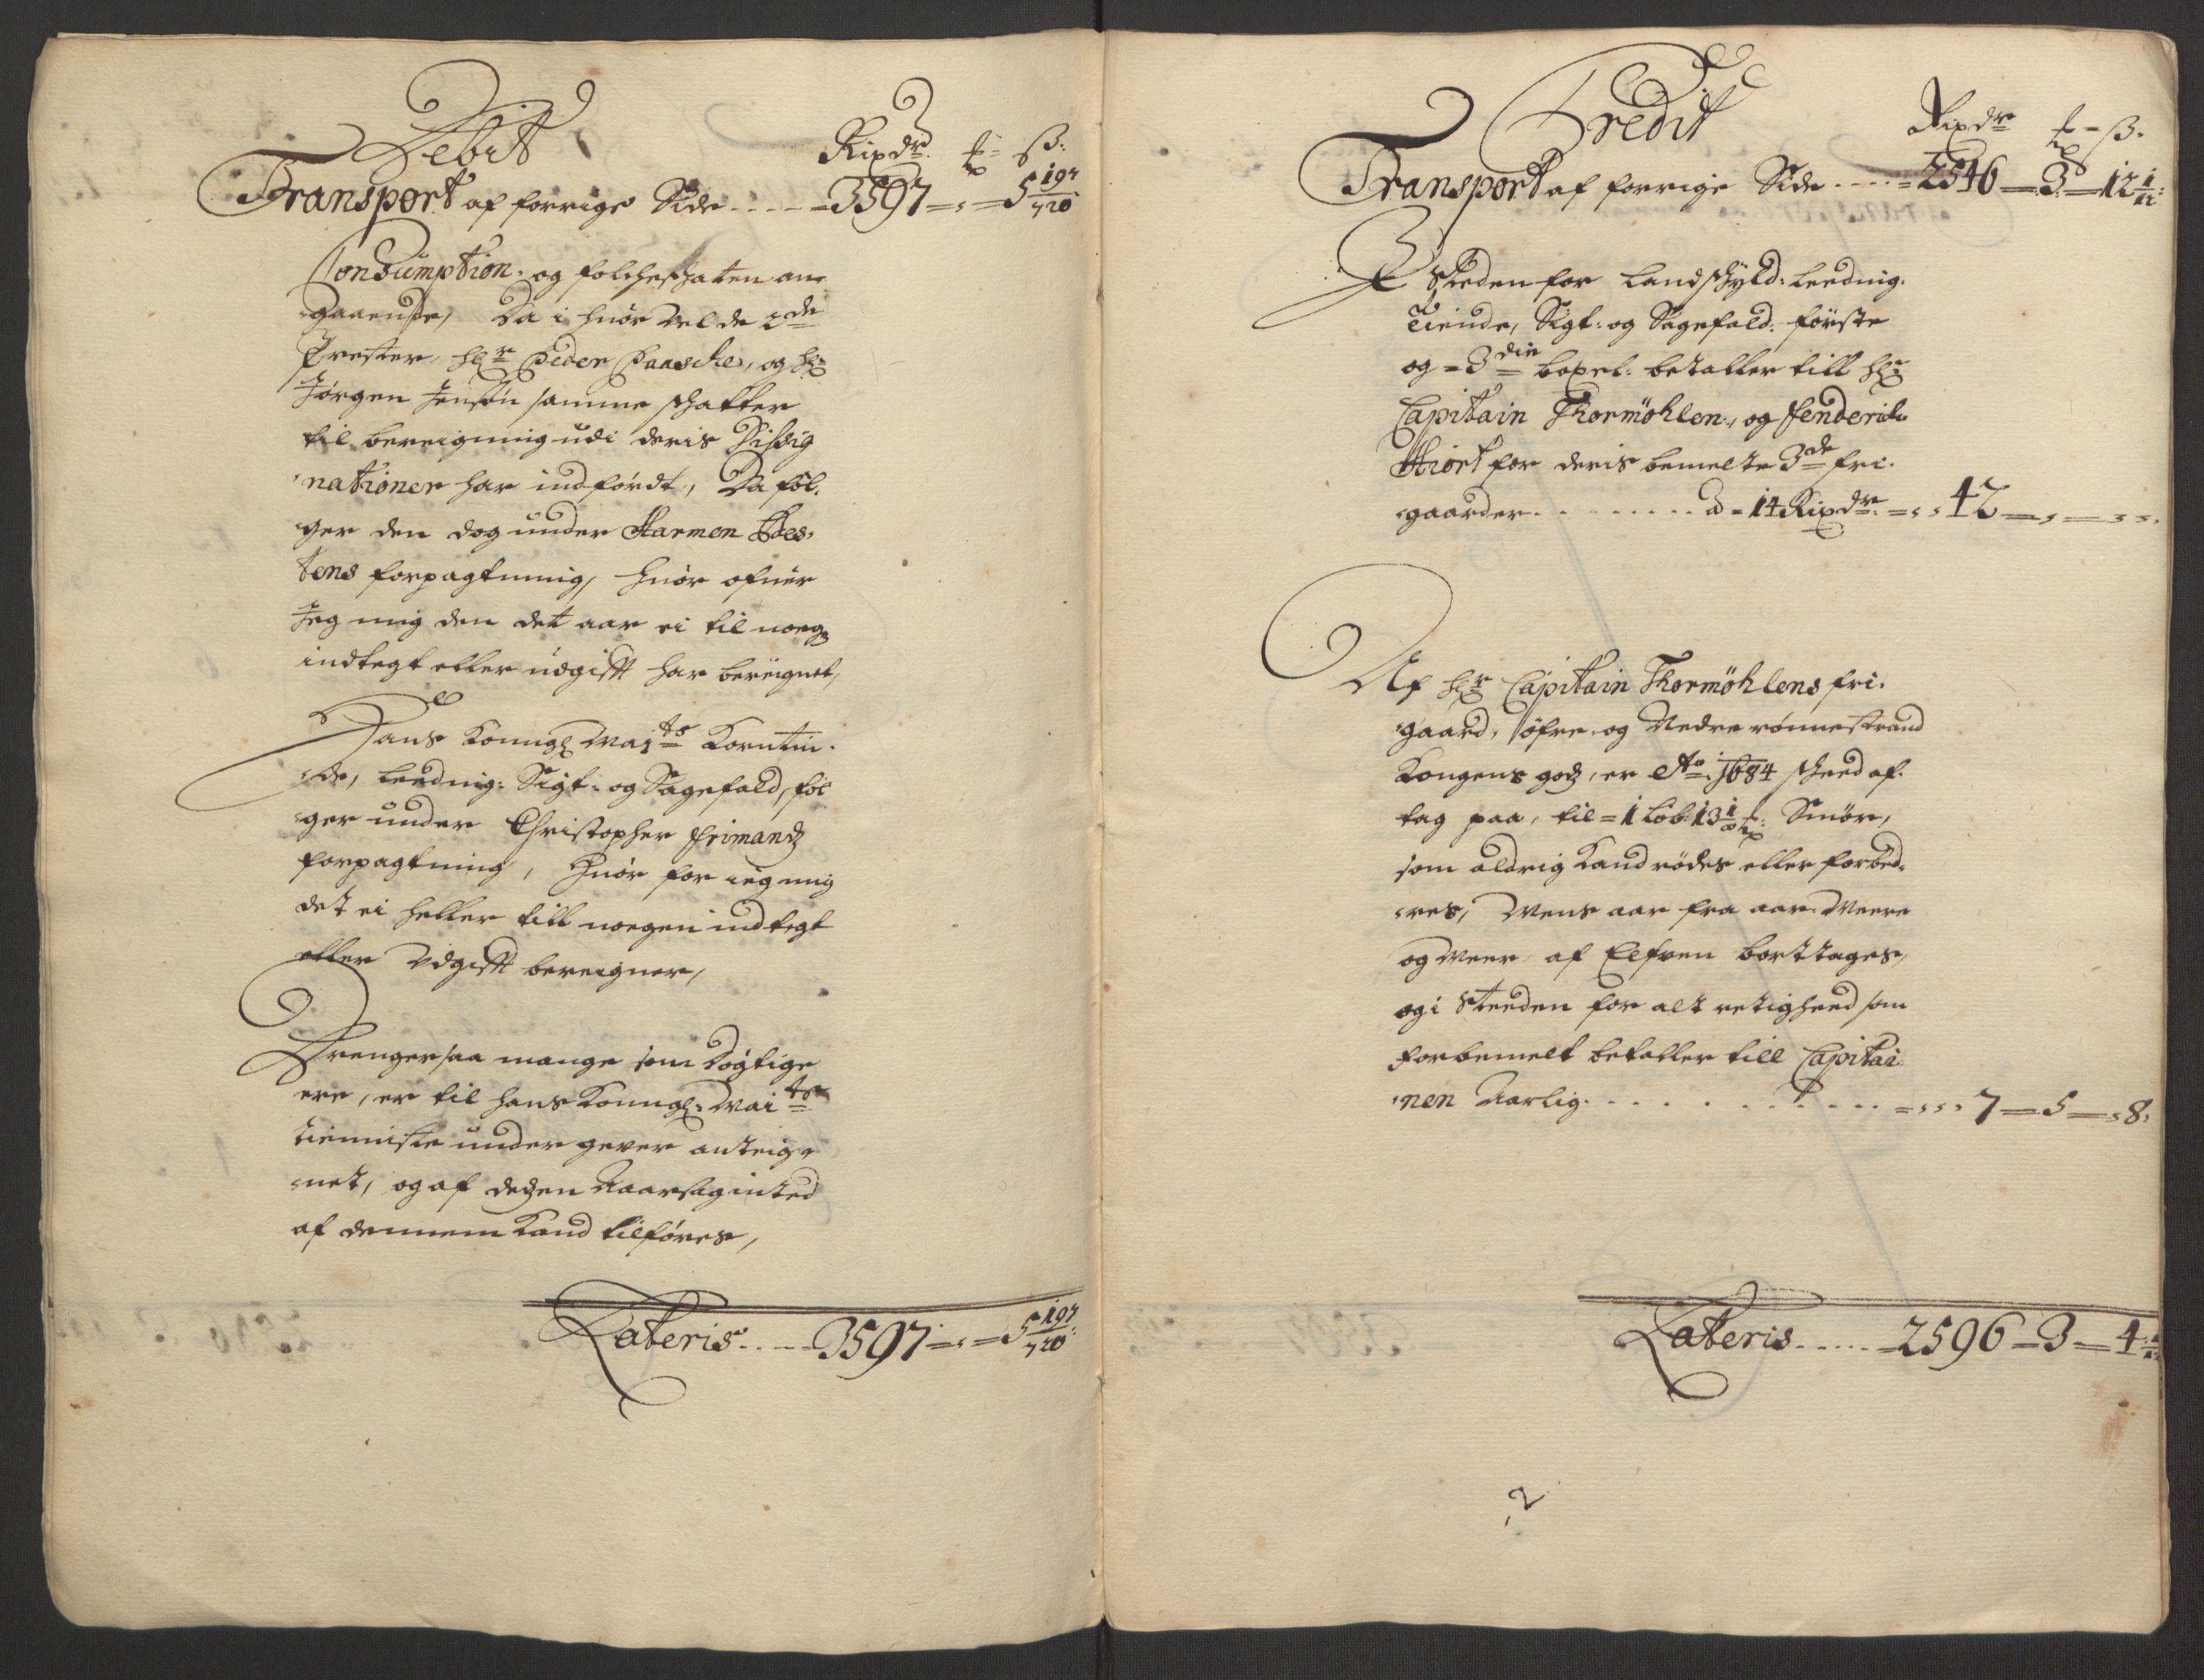 Debit
Rixdr. t= ß:
Transport af forrige Side ..... 3597 = " = 5 197/720
Consumption. og folcheskaten an¬
gaaende, Da i huor vel de 2de
Prester, hr Peder Paasche, og hr
Jørgen Jensøn samme skatter
til bereigning udi deris
nationer har indførdt, Da føl¬
ger den dog under Harmen
tens forpagtning, huor ofuer
Jeg mig den det aar ei til noeg
indtegt eller udgifft har bereignet,
Hans Kongl Maits Korntin¬
de, Leednig: Sigt: og Sagefald, føl
ger under Christopher Frimandz
forpagtning, Huor for ieg mig
det ei heller till noegen indtegt
eller Udgifft bereigner,
Drenger saa mange som dögtige
ere, er til hans Kongl: Maits
tienniste under gever anteig¬
net, og af dezen Aarsag inted
af dennem Kand tilføres,
Lateris ..... 3597 = " = 5 197/720
Credit
Rixdr t = ß.
Transport af forrige Side ..... 2546 = 3 = 12 1/12
I Steden for Landskyld: Leednig:
Tiende, Sigt: og Sagefald: første
og = 3die boxel: betaller till hr
Capitain Thormöhlen, og Fenderich
Hiort for deris bemelte 3de fri¬
gaarder ......... a = 14 Rixdr. = 42 = " = "
Af hr Capitain Thormöhlens fri¬
gaard, öfre og Nedre rönnestrand
Kongens godz, er Ao. 1684 skeed af¬
tag paa, til = 1 Løb: 13 1/2 Smör,
som aldrig Kand rödes eller forbed¬
res, Mens aar fra aar Meere
og Meer af Elfven borttages,
og i Steeden for alt retigheed som
forbemelt betaller till Capitai¬
nen Aarlig ............ 7 = 5 = 8:
Lateris ..... 2596 = 3 = 4 1/12
2